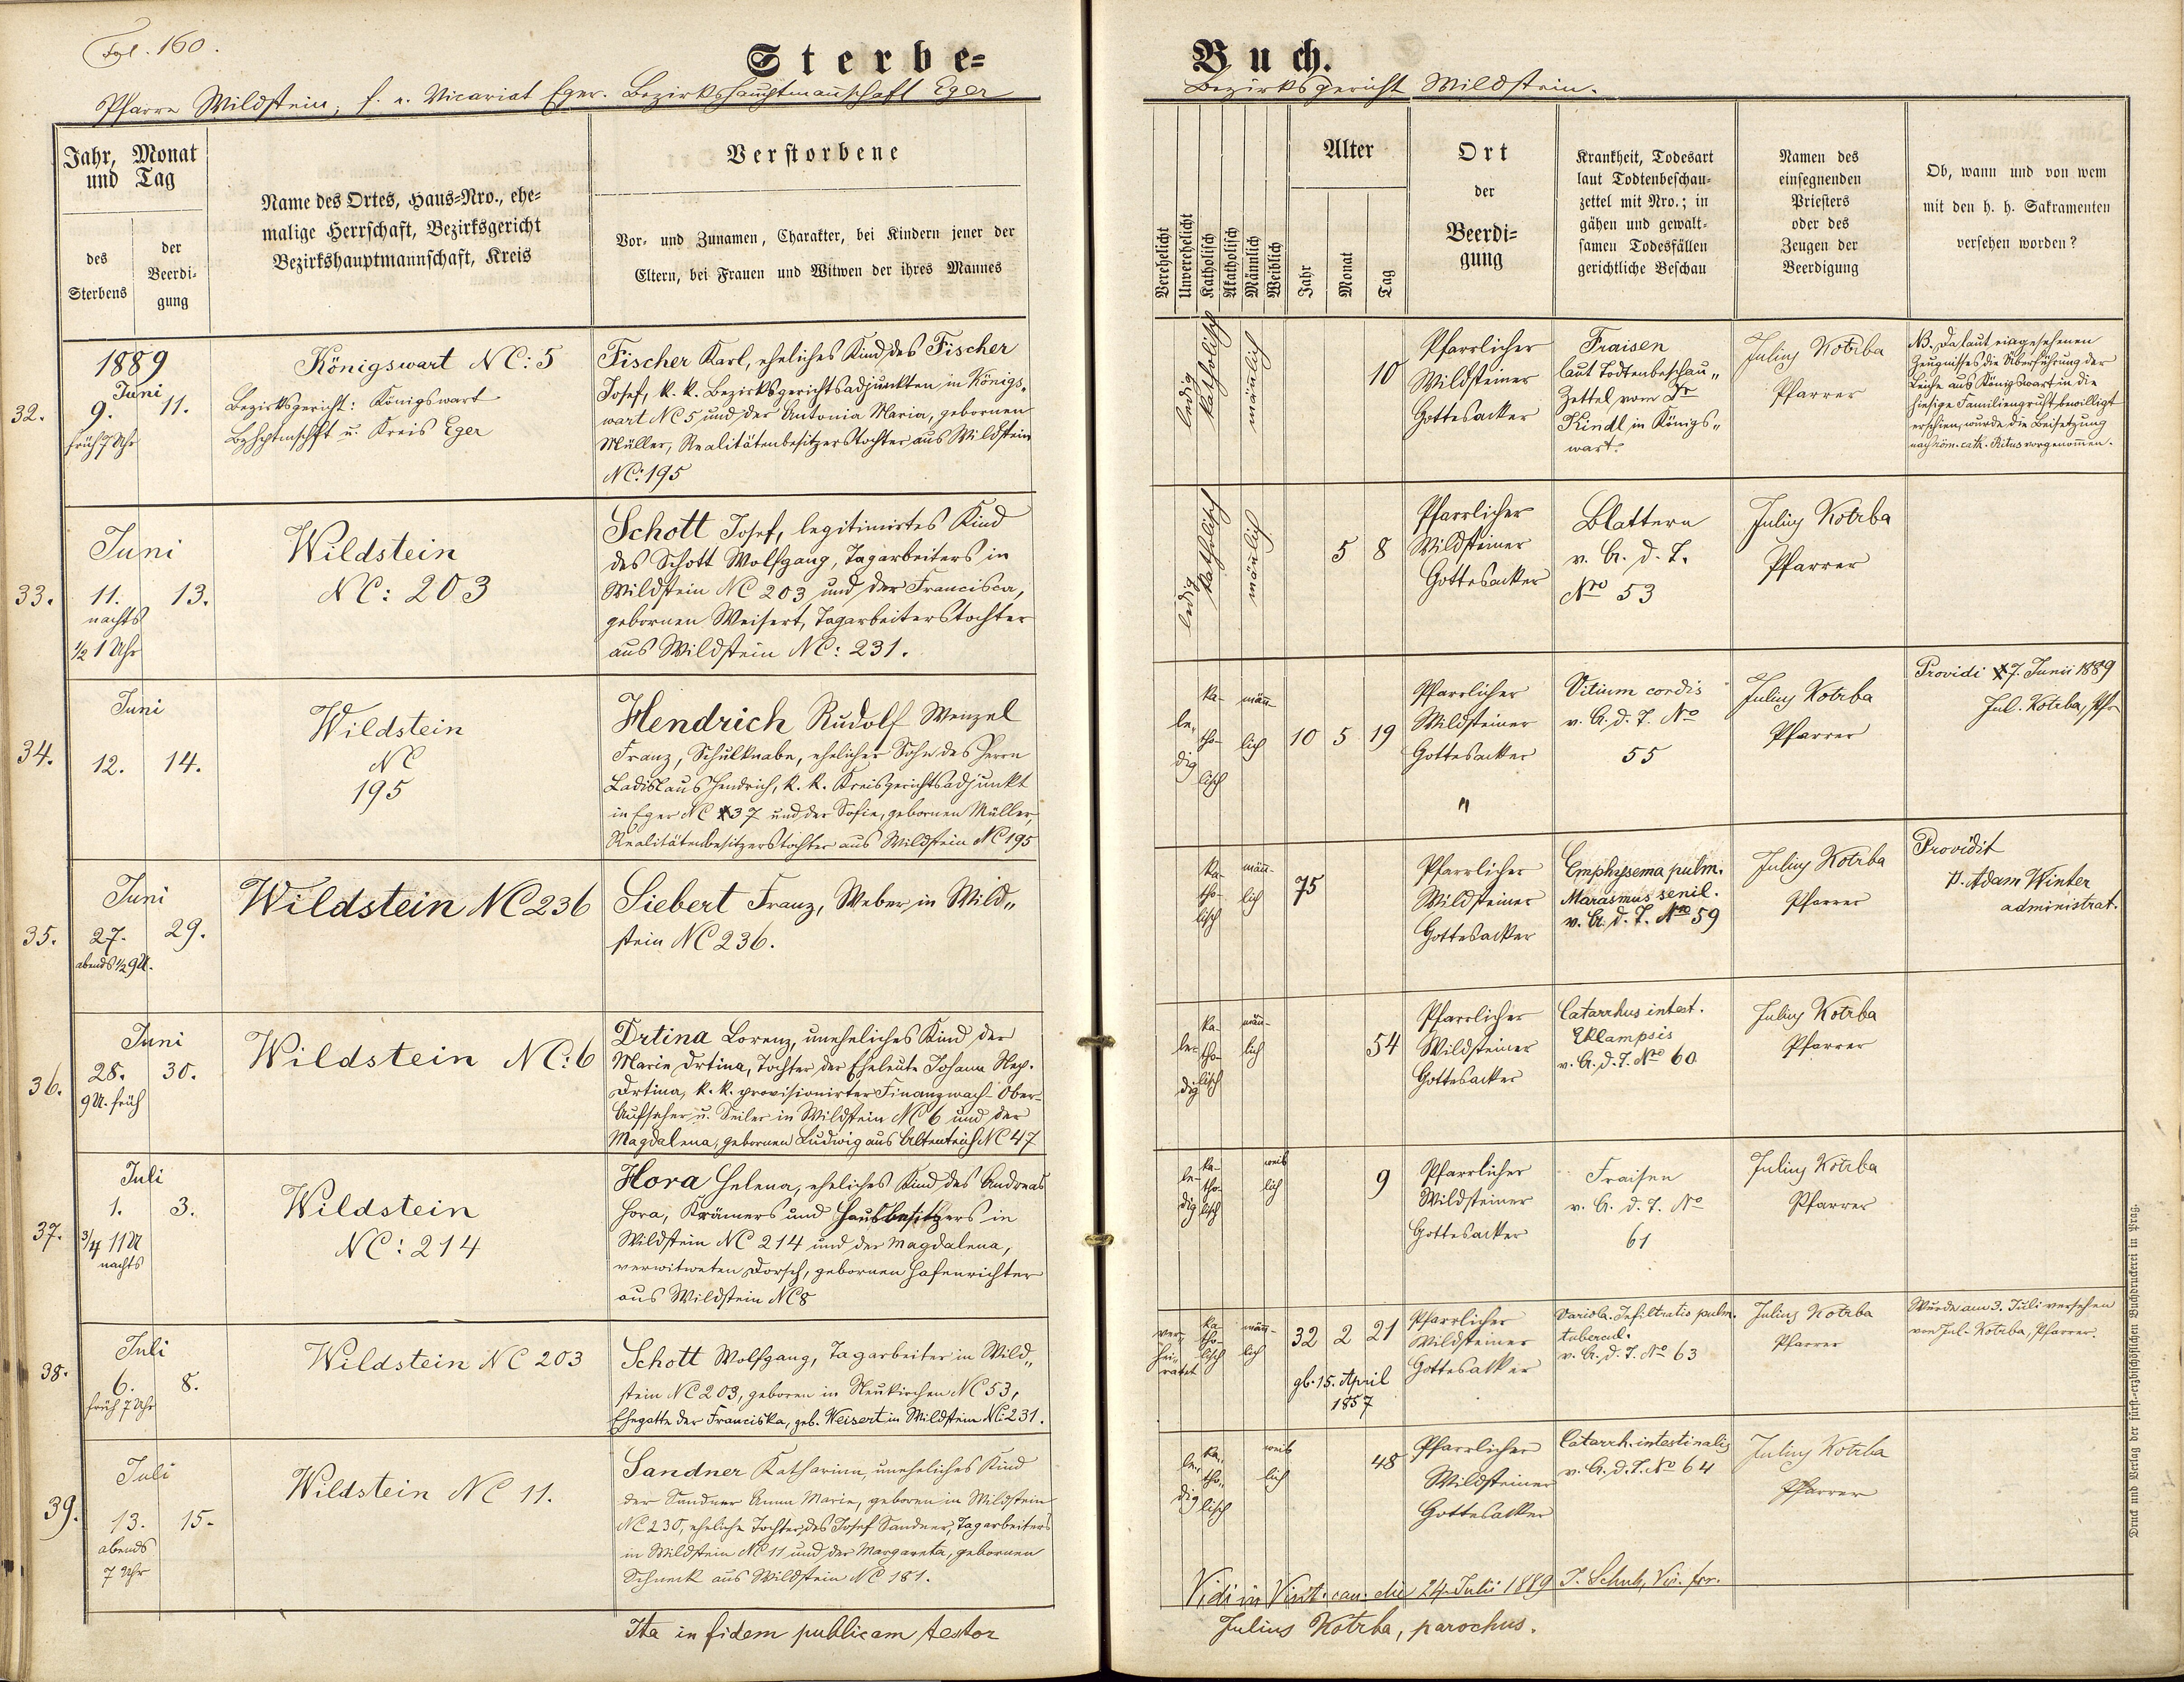 Fol. 160.
Sterbe=
Buch.
Pfarre Wildstein, f. e. Vicariat Eger. Bezirkshauptmannschaft Eger
Bezirksgericht Wildstein.
Jahr, Monat
und Tag
des
Sterbens
der
Beerdi-
gung
Name des Ortes, Haus-Nro., ehe-
malige Herrschaft, Bezirksgericht
Bezirkshauptmannschaft, Kreis
Verstorbene
Vor- und Zunamen, Charakter, bei Kindern jener der
Eltern, bei Frauen und Witwen der ihres Mannes
Verehelicht
Unverehelicht
Katholisch
Akatholisch
Männlich
Weiblich
Alter
Jahr
Monat
Tag
Ort
der
Beerdi-
gung
Krankheit, Todesart
laut Todtenbeschau-
zettel mit Nro.; in
gähen und gewalt-
samen Todesfällen
gerichtliche Beschau
Namen des
einsegnenden
Priesters
oder des
Zeugen der
Beerdigung
Ob, wann und von wem
mit den h. h. Sakramenten
versehen worden?
32.
1889
Juni
9. 11.
früh 7 Uhr
Königswart NC: 5
Bezirksgericht: Königswart
Bzhptmschft u. Kreis Eger
Fischer Karl, eheliches Kind des Fischer
Josef, k. k. Bezirksgerichtsadjunkten in Königs„
wart NC 5 und der Antonia Maria, gebornen
Müller, Realitätenbesitzerstochter aus Wildstein
NC: 195
ledig
katholisch
mänlich
10
Pfarrlicher
Wildsteiner
Gottesacker
Fraisen
laut Todtenbeschau„
Zettel vom Dr
Kindl in Königs„
wart.
Julius Kotrba
Pfarrer
NB. Da laut eingesehenen
Zeugnisses die Überführung der
Leiche aus Königswart in die
hiesige Familiengruft bewilligt
erschien, wurde die Beisetzung
nach röm. cath. Ritus vorgenomen.
33.
Juni
11. 13.
nachts
½ 1 Uhr
Wildstein
NC: 203
Schott Josef, legitimirtes Kind
des Schott Wolfgang, Tagarbeiters in
Wildstein NC 203 und der Francisca,
gebornen Weisert, Tagarbeiterstochter
aus Wildstein NC: 231.
ledig
katholisch
mänlich
5 8
Pfarrlicher
Wildsteiner
Gottesacker
Blattern
v. G. d. T.
No 53
Julius Kotrba
Pfarrer
34.
Juni
12. 14.
Wildstein
NC
195
Hendrich Rudolf Wenzel
Franz, Schulknabe, ehelicher Sohn des Herrn
Ladislaus Hendrich, k. k. Kreisgerichtsadjunkt
in Eger NC 37 und der Sofie, gebornen Müller,
Realitätenbesitzerstochter aus Wildstein NC 195
le„
dig
ka-
tho-
lisch
män-
lich
10 5 19
Pfarrlicher
Wildsteiner
Gottesacker
"
Vitium cordis
v. G. d. T. No
55
Julius Kotrba
Pfarrer
Providi 7. Junii 1889
Jul. Kotrba, Pfr
35.
Juni
27. 29.
abends ½ 9 U.
Wildstein NC 236
Siebert Franz, Weber in Wild„
stein NC 236.
ka-
tho-
lisch
män-
lich
75
Pfarrlicher
Wildsteiner
Gottesacker
Emphysema pulm.
Marasmus senil.
v. G. d. T. No 59
Julius Kotrba
Pfarrer
Providit
P. Adam Winter
administrat.
36.
Juni
28. 30.
9 U. früh
Wildstein NC: 6
Drtina Lorenz, uneheliches Kind der
Marie Drtina, Tochter der Eheleute Johann Nep.
Drtina, k. k. provisionirter Finanzwach- Ober-
Aufseher u. Seiler in Wildstein NC 6 und der
Magdalena, gebornen Ludwig aus Altenteich NC 47
le-
dig
ka-
tho-
lisch
män-
lich
54
Pfarrlicher
Wildsteiner
Gottesacker
Catarrhus intest.
Eklampsis
v. G. d. T. No 60
Julius Kotrba
Pfarrer
37.
Juli
1. 3.
¾ 11 U
nachts
Wildstein
NC: 214
Hora Helena, eheliches Kind des Andreas
Hora, Krämers und Hausbesitzers in
Wildstein NC 214 und der Magdalena,
verwitweten Dorsch, gebornen Hafenrichter
aus Wildstein NC 8
le-
dig
ka-
tho-
lisch
weib
lich
9
Pfarrlicher
Wildsteiner
Gottesacker
Fraisen
v. G. d. T. No
61
Julius Kotrba
Pfarrer
38.
Juli
6. 8.
früh 7 Uhr
Wildstein NC 203
Schott Wolfgang, Tagarbeiter in Wild„
stein NC 203, geboren in Neukirchen NC 53,
Ehegatte der Franciska, geb. Weisert in Wildstein NC: 231.
ver-
hei-
ratet
ka-
tho-
lisch
män-
lich
32 2 21
gb. 15. April
1857
Pfarrlicher
Wildsteiner
Gottesacker
Variola. Infiltratio pulm.
tubercul.
v. G. d. T. No 63
Julius Kotrba
Pfarrer
Wurde am 3. Juli versehen
von Jul. Kotrba, Pfarrer.
39.
Juli
13. 15.
abends
7 Uhr
Wildstein NC 11.
Sandner Katharina, uneheliches Kind
der Sandner Anna Marie, geboren in Wildstein
NC 230, eheliche Tochter des Josef Sandner, Tagarbeiters
in Wildstein NC 11 und der Margareta, gebornen
Schneck aus Wildstein NC 181.
le„
dig
ka„
tho„
lisch
weib
lich
48
Pfarrlicher
Wildsteiner
Gottesacker
Catarrh. intestinalis
v. G. d. T. No 64
Julius Kotrba
Pfarrer
Vidi in Visit. can. die 24. Julii 1889 Vic. for.
Ita in fidem publicam testor
Julius Kotrba, parochus.
Druck und Verlag der fürst-erzbischöflichen Buchdruckerei in Prag.